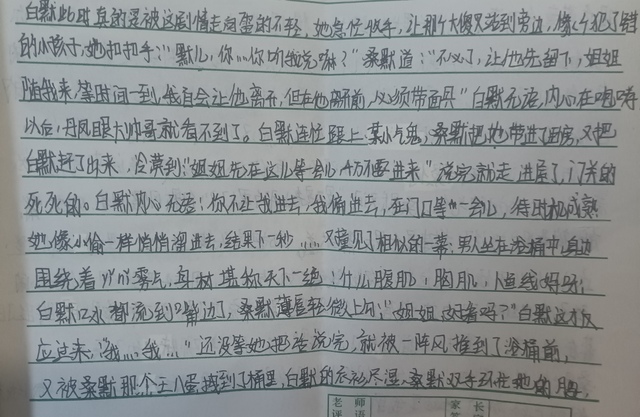 白默此时真的是被这剧情走向蛋的不轻，她急忙收手，让那个大傻叉站到旁边，像个犯了错
的小孩子，她扣扣手："默儿，你…你听我说嘛？"桑默道："不必了，让他先留下，姐姐
随我来，等时间一到，我自会让他离开，但在他离开前，必须带面具"白默无语，内心在咆哮
以后，丹凤眼大帅哥就看不到了。白默连忙跟上某小气鬼，桑默把她带进了厨房，又把
白默赶了出来，冷漠到："姐姐先在这儿等会儿，千万不要进来"说完就走进屋了，门关的
死死的。白默内心无语：你不让我进去，我偏进去，在门口等一会儿，待时机成熟
她像小偷一样悄悄溜进去，结果下一秒……又撞见了相似的一幕：男人坐在浴桶中，身边
围绕着雾点，身材堪称天下一绝：什么腹肌，胸肌，人鱼线好呀
白默口水都流到嘴边了，桑默薄唇轻微上勾，"姐姐，好看吗？"白默这才反
应过来，"我……我……"还没等她把话说完，就被一阵风推到了浴桶前，
又被桑默那个王八蛋拽到了桶里，白默的衣衫尽湿，桑默双手环住她的腰
老 师 家 长
评 语 签